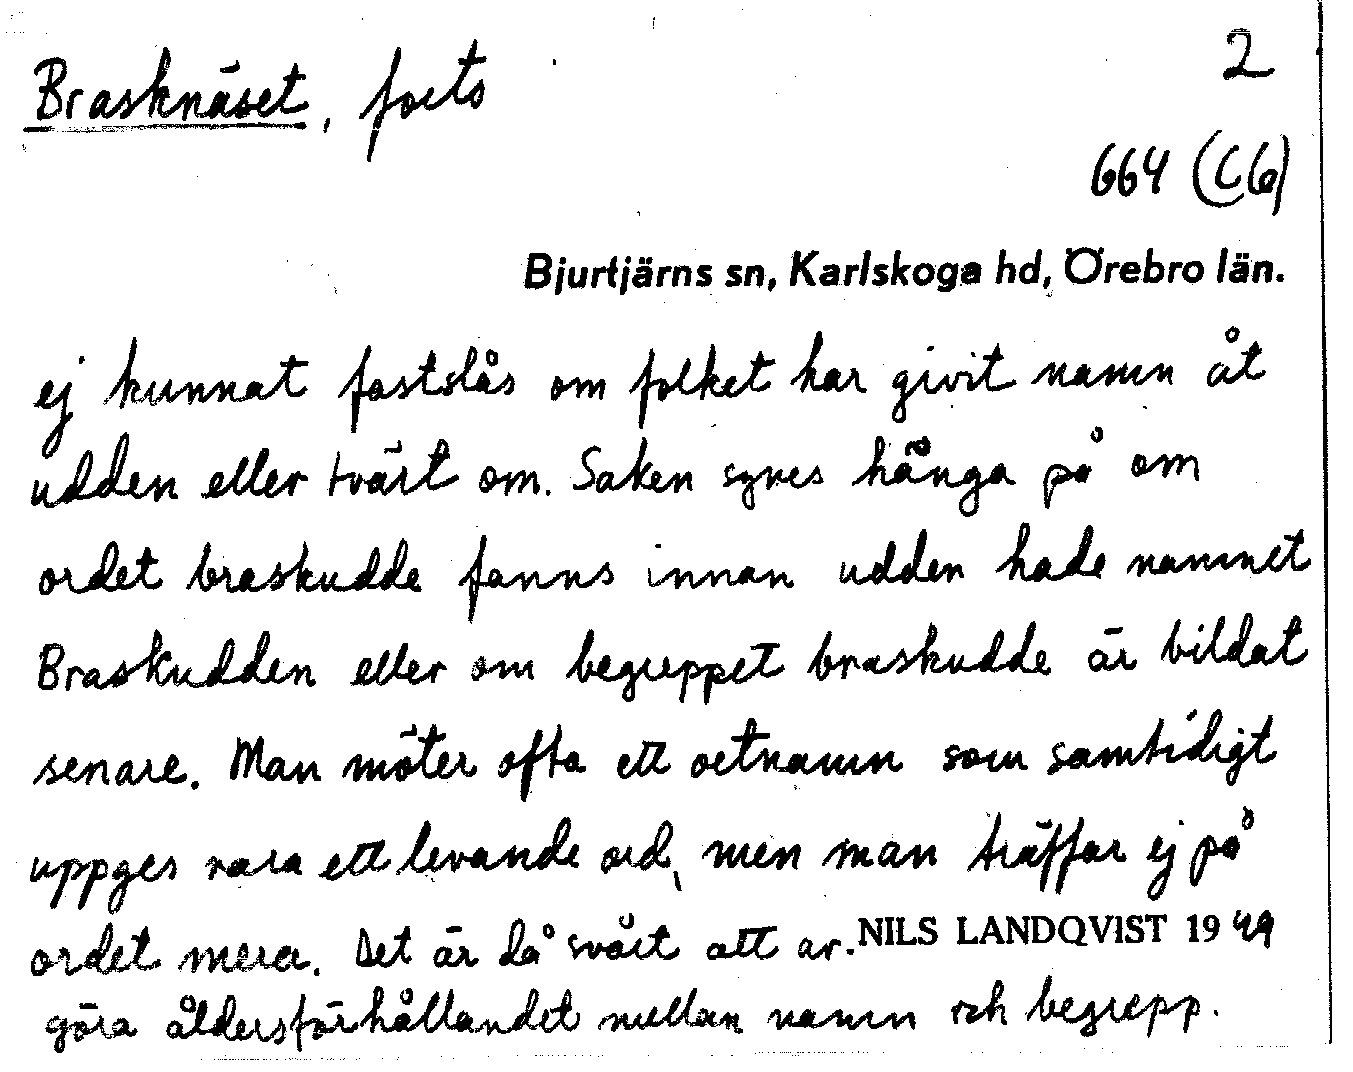 Brasknäset, forts
2
664 (C6)
Bjurtjärns sn, Karlskoga hd, Örebro län.
ej kunnat fastslås om folket har givit namn åt
udden eller tvärt om. Saken synes hänga på om
ordet braskudde fanns innan udden hade namnet
Braskudden eller om begreppet braskudde är bildat
senare. Man möter ofta ett ortnamn som samtidigt
uppges vara ett levande ord, men man träffar ej på
ordet mera. Det är då svårt att av-
NILS LANDQVIST 1949
göra åldersförhållandet mellan namn och begrepp.